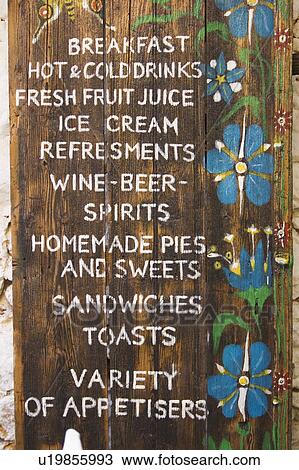 BREAKFAST
HOT & COLD DRINKS
FRESH FRUIT JUICE
ICE CREAM
REFRESMENTS
WINE-BEER-
SPIRITS
HOMEMADE PIES
AND SWEETS
SANDWICHES
TOASTS
VARIETY
OF APPETISERS
fotosearch
u19855993 © fotosearch.com